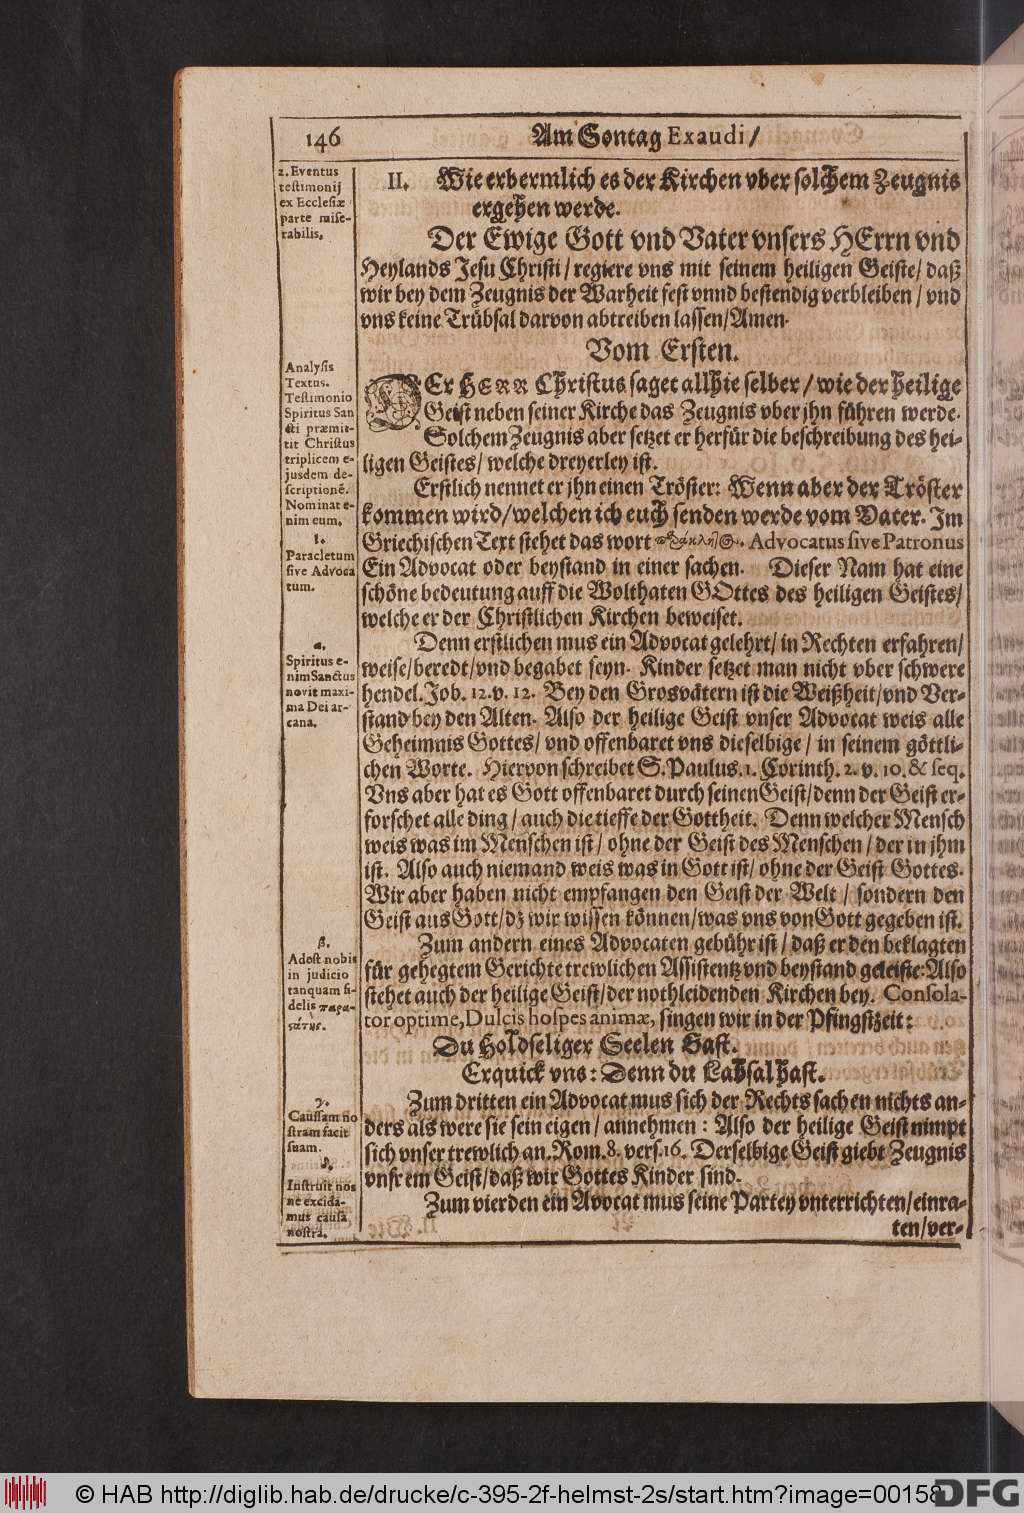 146 Am Sontag Exaudi /
2. Eventus
testimonij
ex Ecclesiæ
parte mise-
rabilis.
II. Wie erbermlich es der Kirchen vber solchem Zeugnis
ergehen werde.
Der Ewige Gott vnd Vater vnsers HErrn vnd
Heylands Jesu Christi / regiere vns mit seinem heiligen Geiste / daß
wir bey dem Zeugnis der Warheit fest vnnd bestendig verbleiben / vnd
vns keine Trübsal darvon abtreiben lassen / Amen.
Vom Ersten.
Analysis
Textus.
Testimonio
Spiritus San
cti præmit-
tit Christus
triplicem e-
jusdem de-
scriptionẽ.
Nominat e-
nim eum.
1.
Paracletum
sive Advoca
tum.
DEr HERR Christus saget allhie selber / wie der heilige
Geist neben seiner Kirche das Zeugnis vber jhn führen werde.
Solchem Zeugnis aber setzet er herfür die beschreibung des hei-
ligen Geistes / welche dreyerley ist.
Erstlich nennet er jhn einen Tröster: Wenn aber der Tröster
kommen wird / welchen ich euch senden werde vom Vater. Im
Griechischen Text stehet das wort Advocatus sive Patronus
Ein Advocat oder beystand in einer sachen. Dieser Nam hat eine
schöne bedeutung auff die Wolthaten GOttes des heiligen Geistes /
welche er der Christlichen Kirchen beweiset.
α.
Spiritus e-
nim Sanctus
novit maxi-
ma Dei ar-
cana.
Denn erstlichen mus ein Advocat gelehrt / in Rechten erfahren /
weise / beredt / vnd begabet seyn. Kinder setzet man nicht vber schwere
hendel. Job. 12. v. 12. Bey den Grosvätern ist die Weißheit / vnd Ver-
stand bey den Alten. Also der heilige Geist vnser Advocat weis alle
Geheimnis Gottes / vnd offenbaret vns dieselbige / in seinem göttli-
chen Worte. Hiervon schreibet S. Paulus. 1. Corinth. 2. v. 10. & seq.
Vns aber hat es Gott offenbaret durch seinen Geist / denn der Geist er-
forschet alle ding / auch die tieffe der Gottheit. Denn welcher Mensch
weis was im Menschen ist / ohne der Geist des Menschen / der in jhm
ist. Also auch niemand weis was in Gott ist / ohne der Geist Gottes.
Wir aber haben nicht empfangen den Geist der Welt / sondern den
Geist aus Gott / dz wir wissen können / was vns von Gott gegeben ist.
β.
Adest nobis
in judicio
tanquam fi-
delis παρα-
στάτης.
Zum andern eines Advocaten gebühr ist / daß er den beklagten
für gehegtem Gerichte trewlichen Assistentz vnd beystand geleiste: Also
stehet auch der heilige Geist / der nothleidenden Kirchen bey. Consola-
tor optime, Dulcis hospes animæ, singen wir in der Pfingstzeit:
Du Holdseliger Seelen Gast.
Erquick vns: Denn du Labsal hast.
γ.
Caussam no
stram facit
suam.
δ.
Instruit nos
ne excida-
mus causâ
nostrâ.
Zum dritten ein Advocat mus sich der Rechts sachen nichts an-
ders als were sie sein eigen / annehmen: Also der heilige Geist nimpt
sich vnser trewlich an. Rom. 8. vers. 16. Derselbige Geist giebt Zeugnis
vnsrem Geist / daß wir Gottes Kinder sind.
Zum vierden ein Avocat mus seine Partey vnterrichten / einra-
ten / ver-
© HAB http://diglib.hab.de/drucke/c-395-2f-helmst-2s/start.htm?image=00158
DFG